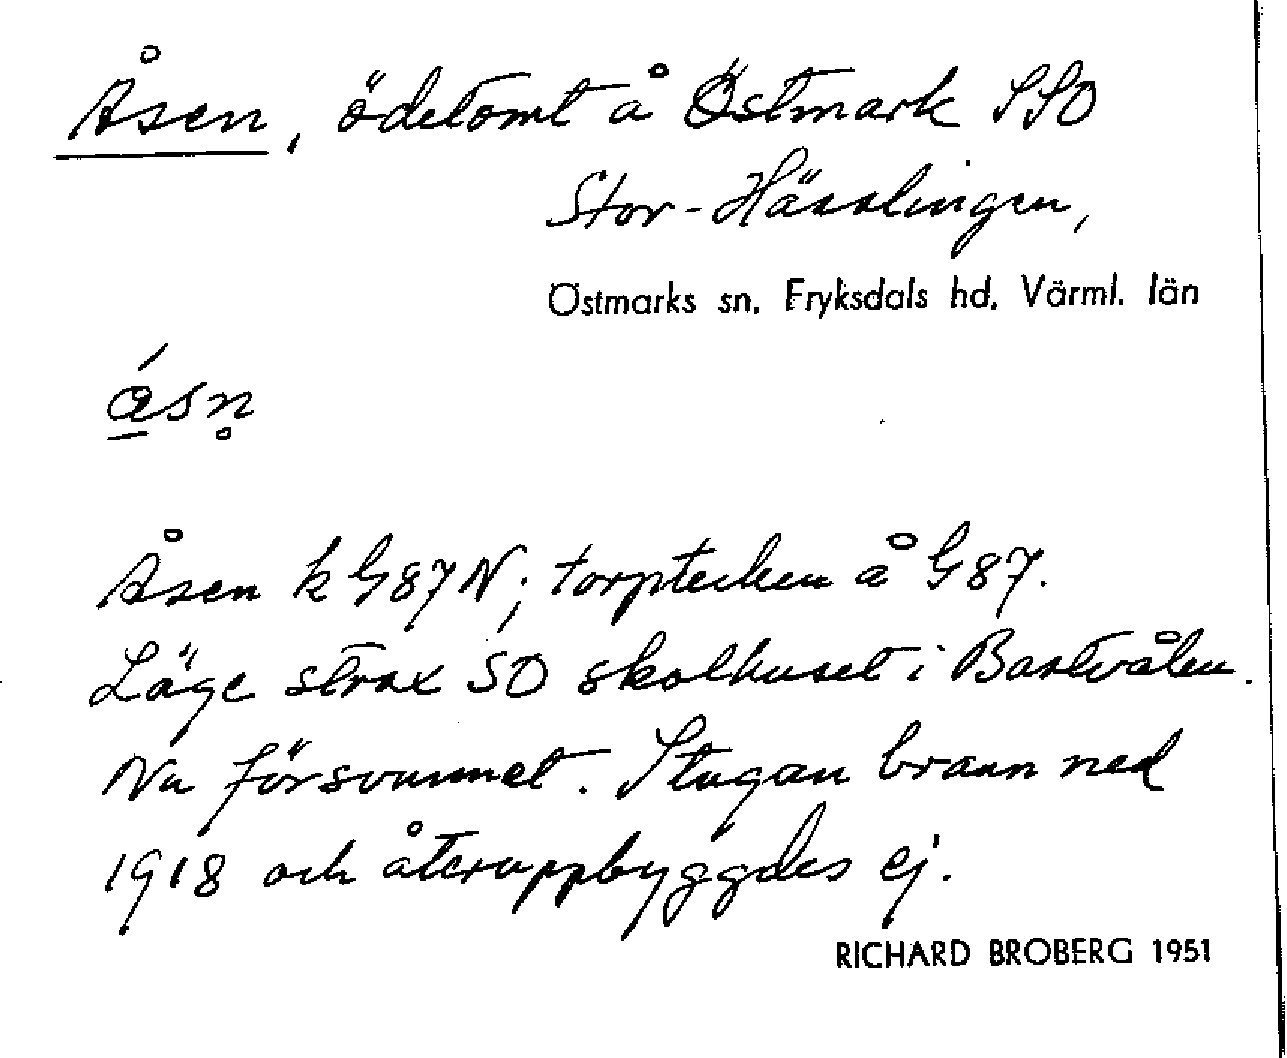 Åsen, ödetomt å Östmark SSO
Stor-Hässlingen,
Östmarks sn. Fryksdals hd. Värml. län
ásn̥
Åsen k G87N; torptecken å G87.
Läge strax SO skolhuset i Bastvålen.
Nu försvunnet. Stugan brann ned
1918 och återuppbyggdes ej.
RICHARD BROBERG 1951